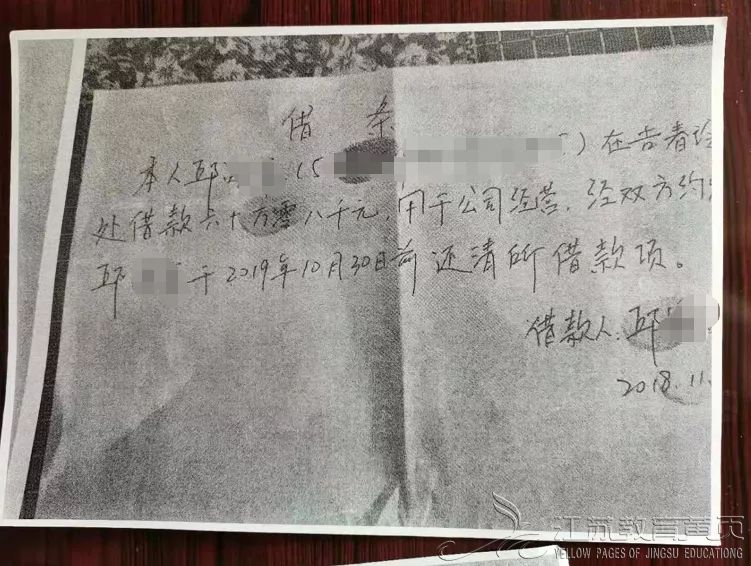 借 条
本人邱 (5 ) 在告春
处借款六十万零八千元,用于公司经营,经双方约
邱 于2019年10月30日前还清所借款项。
借款人:邱
2018.11.
江苏教育黄页
YELLOW PAGES OF JINGSU EDUCATIONG